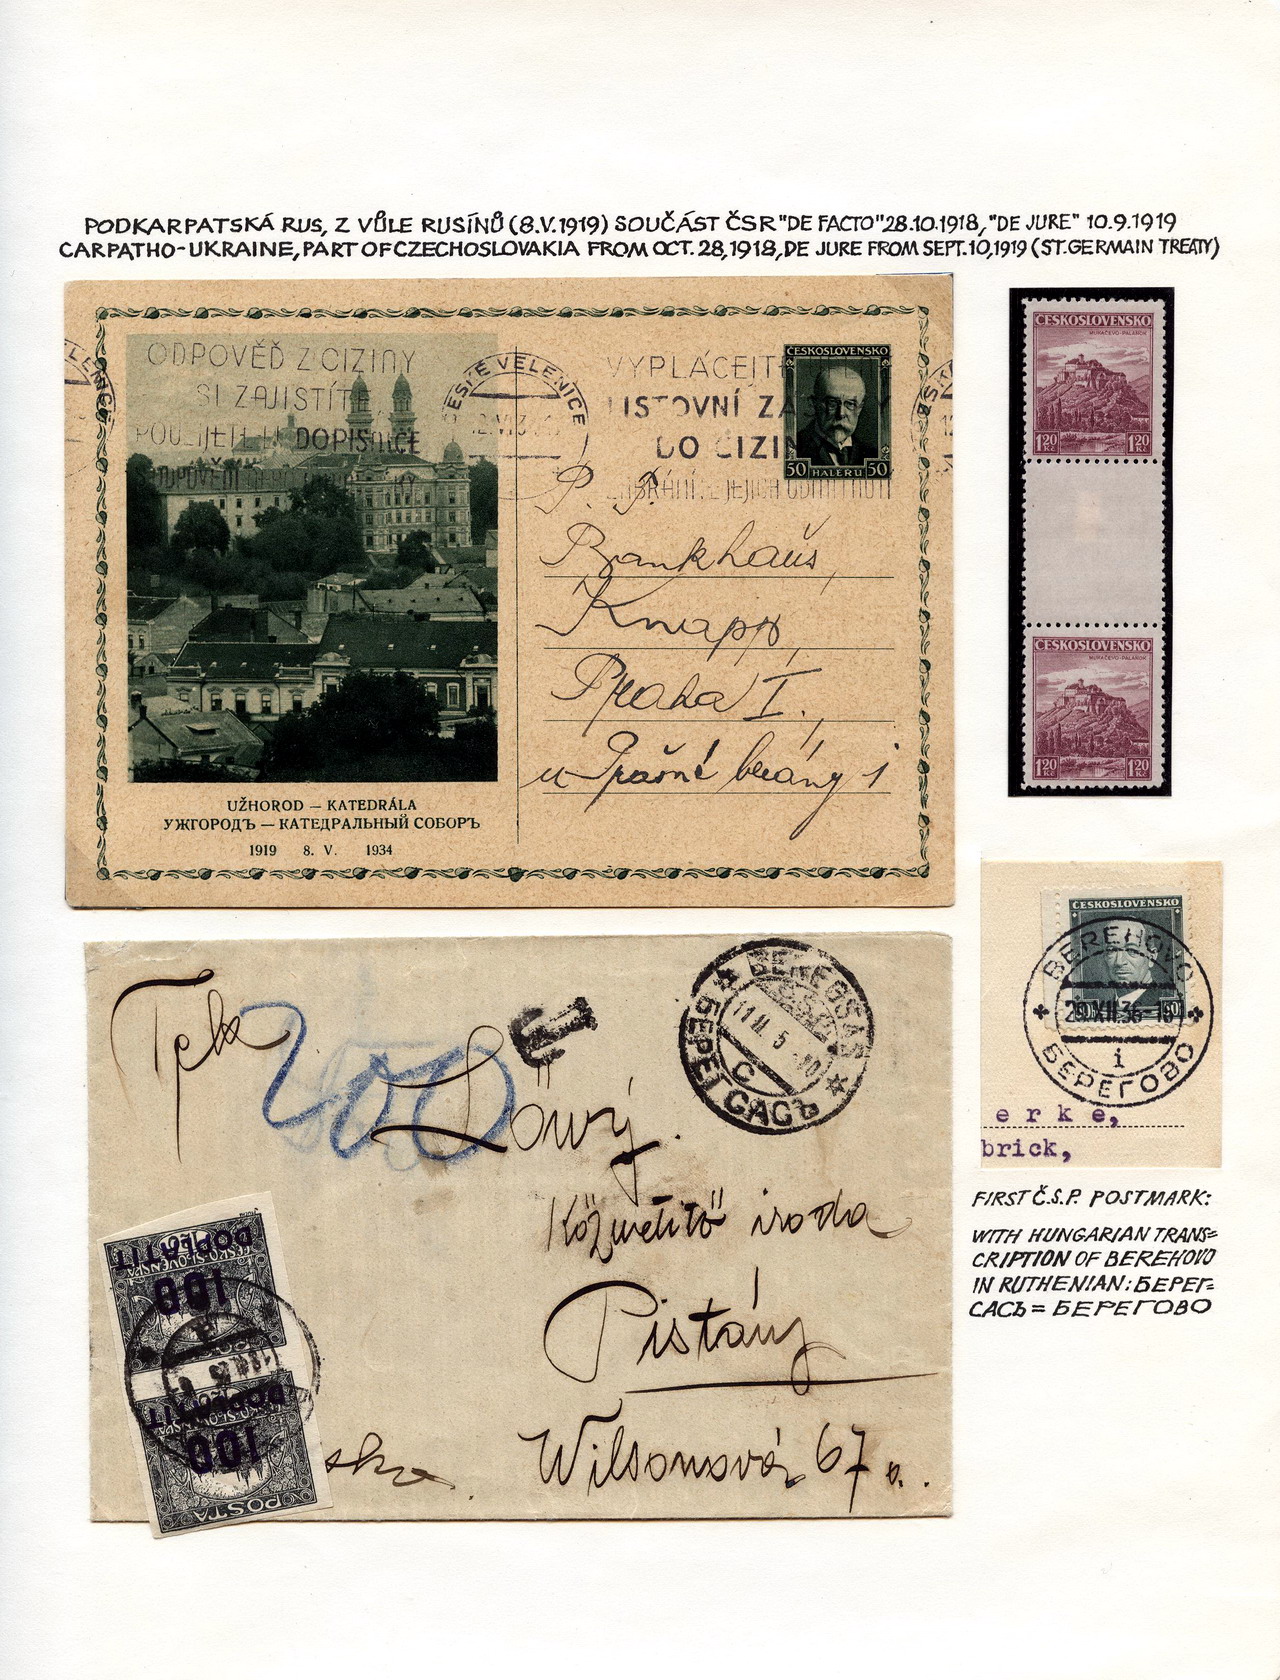 PODKARPATSKÁ RUS, Z VŮLE RUSÍNŮ (8.V.1919) SOUČÁST ČSR "DE FACTO" 28.10.1918, "DE JURE" 10.9.1919
CARPATHO-UKRAINE, PART OF CZECHOSLOVAKIA FROM OCT. 28, 1918, DE JURE FROM SEPT. 10, 1919 (ST. GERMAIN TREATY)
ODPOVĚĎ Z CIZINY
SI ZAJISTÍTE,
DOPISNICE
ČESKÉ VELENICE
VYPLÁCEJTE
LISTOVNÍ
DO CIZINY
ČESKOSLOVENSKO
50 HALÉŘŮ 50
P. T.
Bankhaus,
Knapp,
Praha I.,
u Prašné brány 1
UŽHOROD – KATEDRÁLA
УЖГОРОДЪ – КАТЕДРАЛЬНЫЙ СОБОРЪ
1919 8. V. 1934
ČESKOSLOVENSKO
MUKAČEVO-PALANOK
1.20 Kč 1.20 Kč
ČESKOSLOVENSKO
MUKAČEVO-PALANOK
1.20 Kč 1.20 Kč
ČESKOSLOVENSKO
BEREHOVO
29.XII.36-15
i
БЕРЕГОВО
erke,
brick,
FIRST Č.S.P. POSTMARK:
WITH HUNGARIAN TRANS=
CRIPTION OF BEREHOVO
IN RUTHENIAN: БЕРЕГ=
САСЪ = БЕРЕГОВО
200
T
BEREGSAS
C
БЕРЕГСАСЪ
Löwy
Közvetitö iroda
Pistány
Wilsonová 67
DOPLATIT
100
DOPLATIT
100
POŠTA